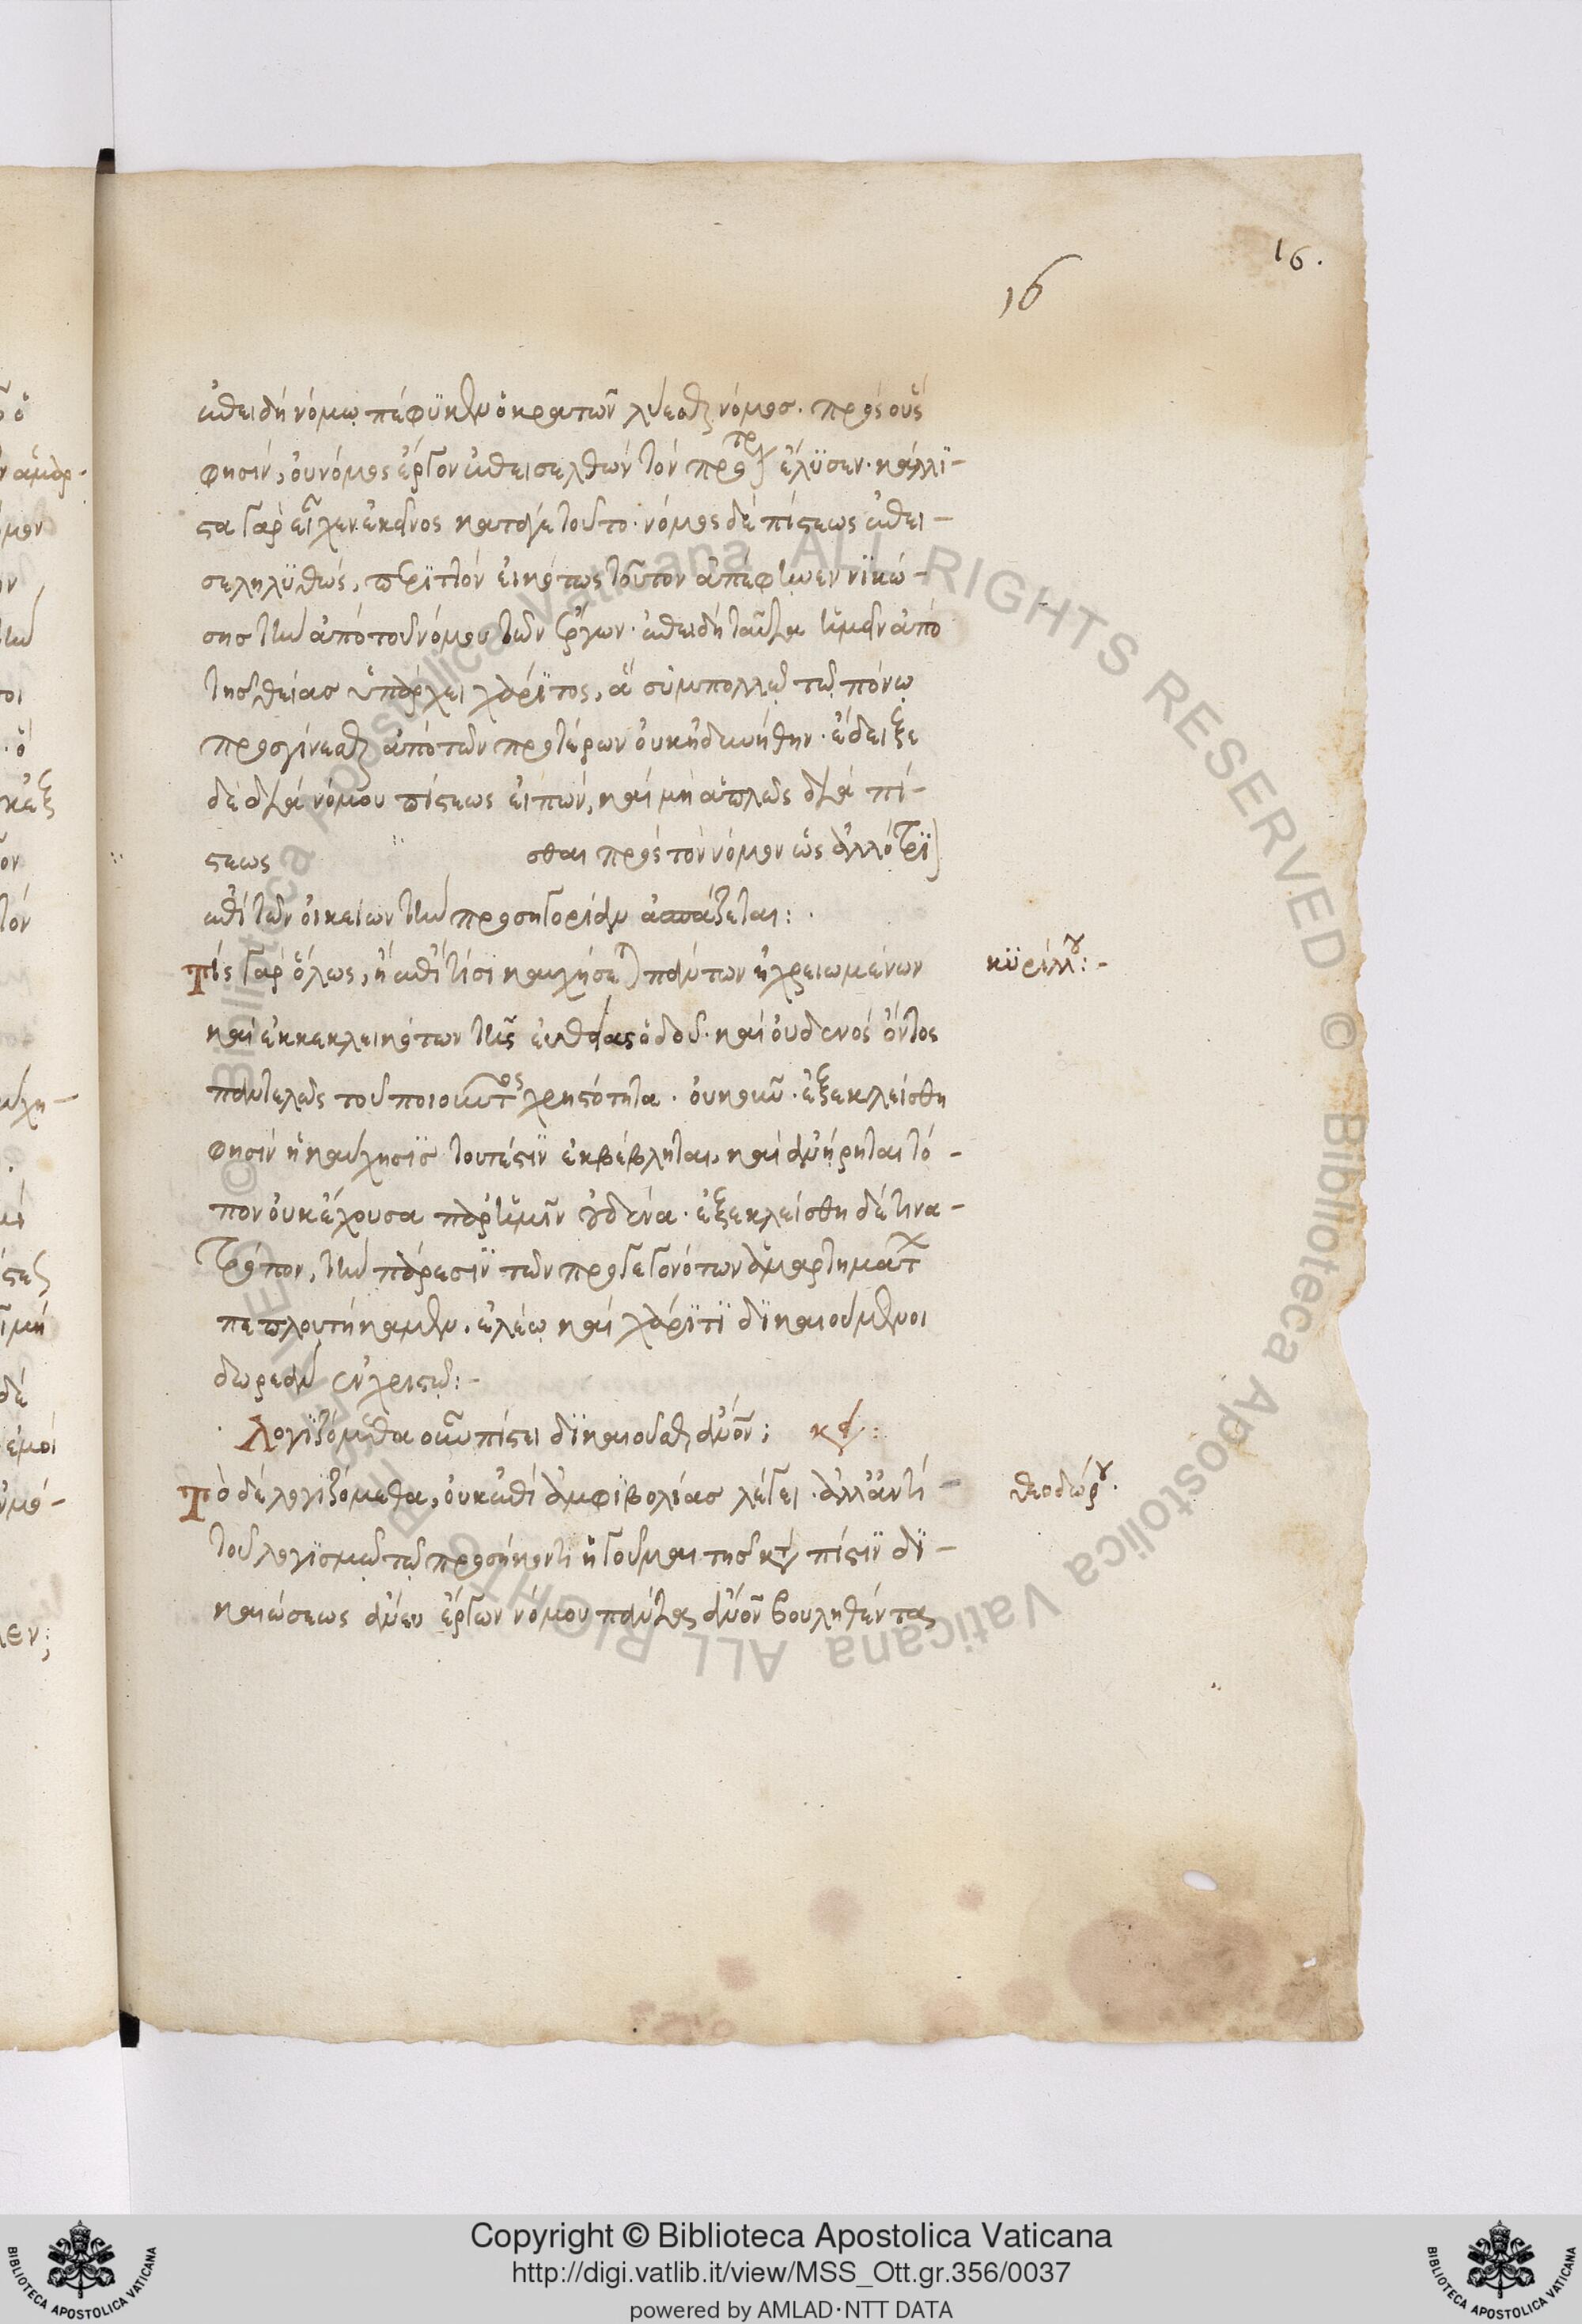 16.
16
ἐπειδὴ νόμῳ πέφϋκεν ὁ κρατῶν λύεσθαι νόμος. πρὸς οὓς
φησὶν, οὐ νόμος ἔργων ἐπεισελθὼν τὸν πρότερον ἔλϋσεν. κάλλϊ-
στα γὰρ εἶχεν ἐκεῖνος κατά γε τοῦτο. νόμος δὲ πίστεως ἐπει-
σεληλϋθὼς, περϊττὸν εἰκότως τοῦτον ἀπέφηνεν νϊκώ-
σης τὴν ἀπὸ τοῦ νόμου τῶν ἔργων. ἐπειδὴ ταῦτα ἡμῖν ἀπὸ
τῆς θείας ὑπάρχει χάρϊτος, ἃ σὺν πολλῷ τῷ πόνῳ
προσγίνεσθαι ἀπὸ τῶν προτέρων οὐκ ἠδυνήθην. ἔδειξε
δὲ διὰ νόμου πίστεως εἰπὼν, καὶ μὴ ἁπλῶς διὰ πί-
στεως σθαι πρὸς τὸν νόμον ὡς ἀλλότρϊον
ἐπὶ τῶν οἰκείων τὴν προσηγορίαν ἀσπάζεται:.
Τίς γὰρ ὅλως, ἢ ἐπὶ τίσι καυχήσεται πάντων ἠχρειωμένων κϋρίλλου:-
καὶ ἐκκεκλεικότων τῆς εὐθείας ὁδοῦ. καὶ οὐδενὸς ὄντος
παντελῶς τοῦ ποιοῦντος χρηστότητα. οὐκοῦν. ἐξεκλείσθη
φησὶν ἡ καύχησϊς τουτέστϊν ἐκβέβληται, καὶ ἀνήρηται τό-
πον οὐκ ἔχουσα παρ' ἡμῖν οὐδένα. ἐξεκλείσθη δὲ τίνα-
τρόπον, τὴν πάρεσϊν τῶν προγεγονότων ἁμαρτημάτων
πεπλουτήκαμεν. ἐλέῳ καὶ χάρϊτϊ δϊκαιούμενοι
δωρεὰν ἐν χριστῷ:-
Λογϊζόμεθα οὖν πίστει δϊκαιοῦσθαι ἄνον; κείμενον:
Τὸ δὲ λογϊζόμεθα, οὐκ ἐπὶ ἀμφϊβολίας λέγει. ἀλλ' ἀντὶ- θεοδώρου.
τοῦ λογϊσμῷ τῷ προσήκοντι ἡγοῦμαι τῆς κατὰ πίστϊν δϊ-
καιώσεως ἄνευ ἔργων νόμου πάντας ἄνον βουληθέντας